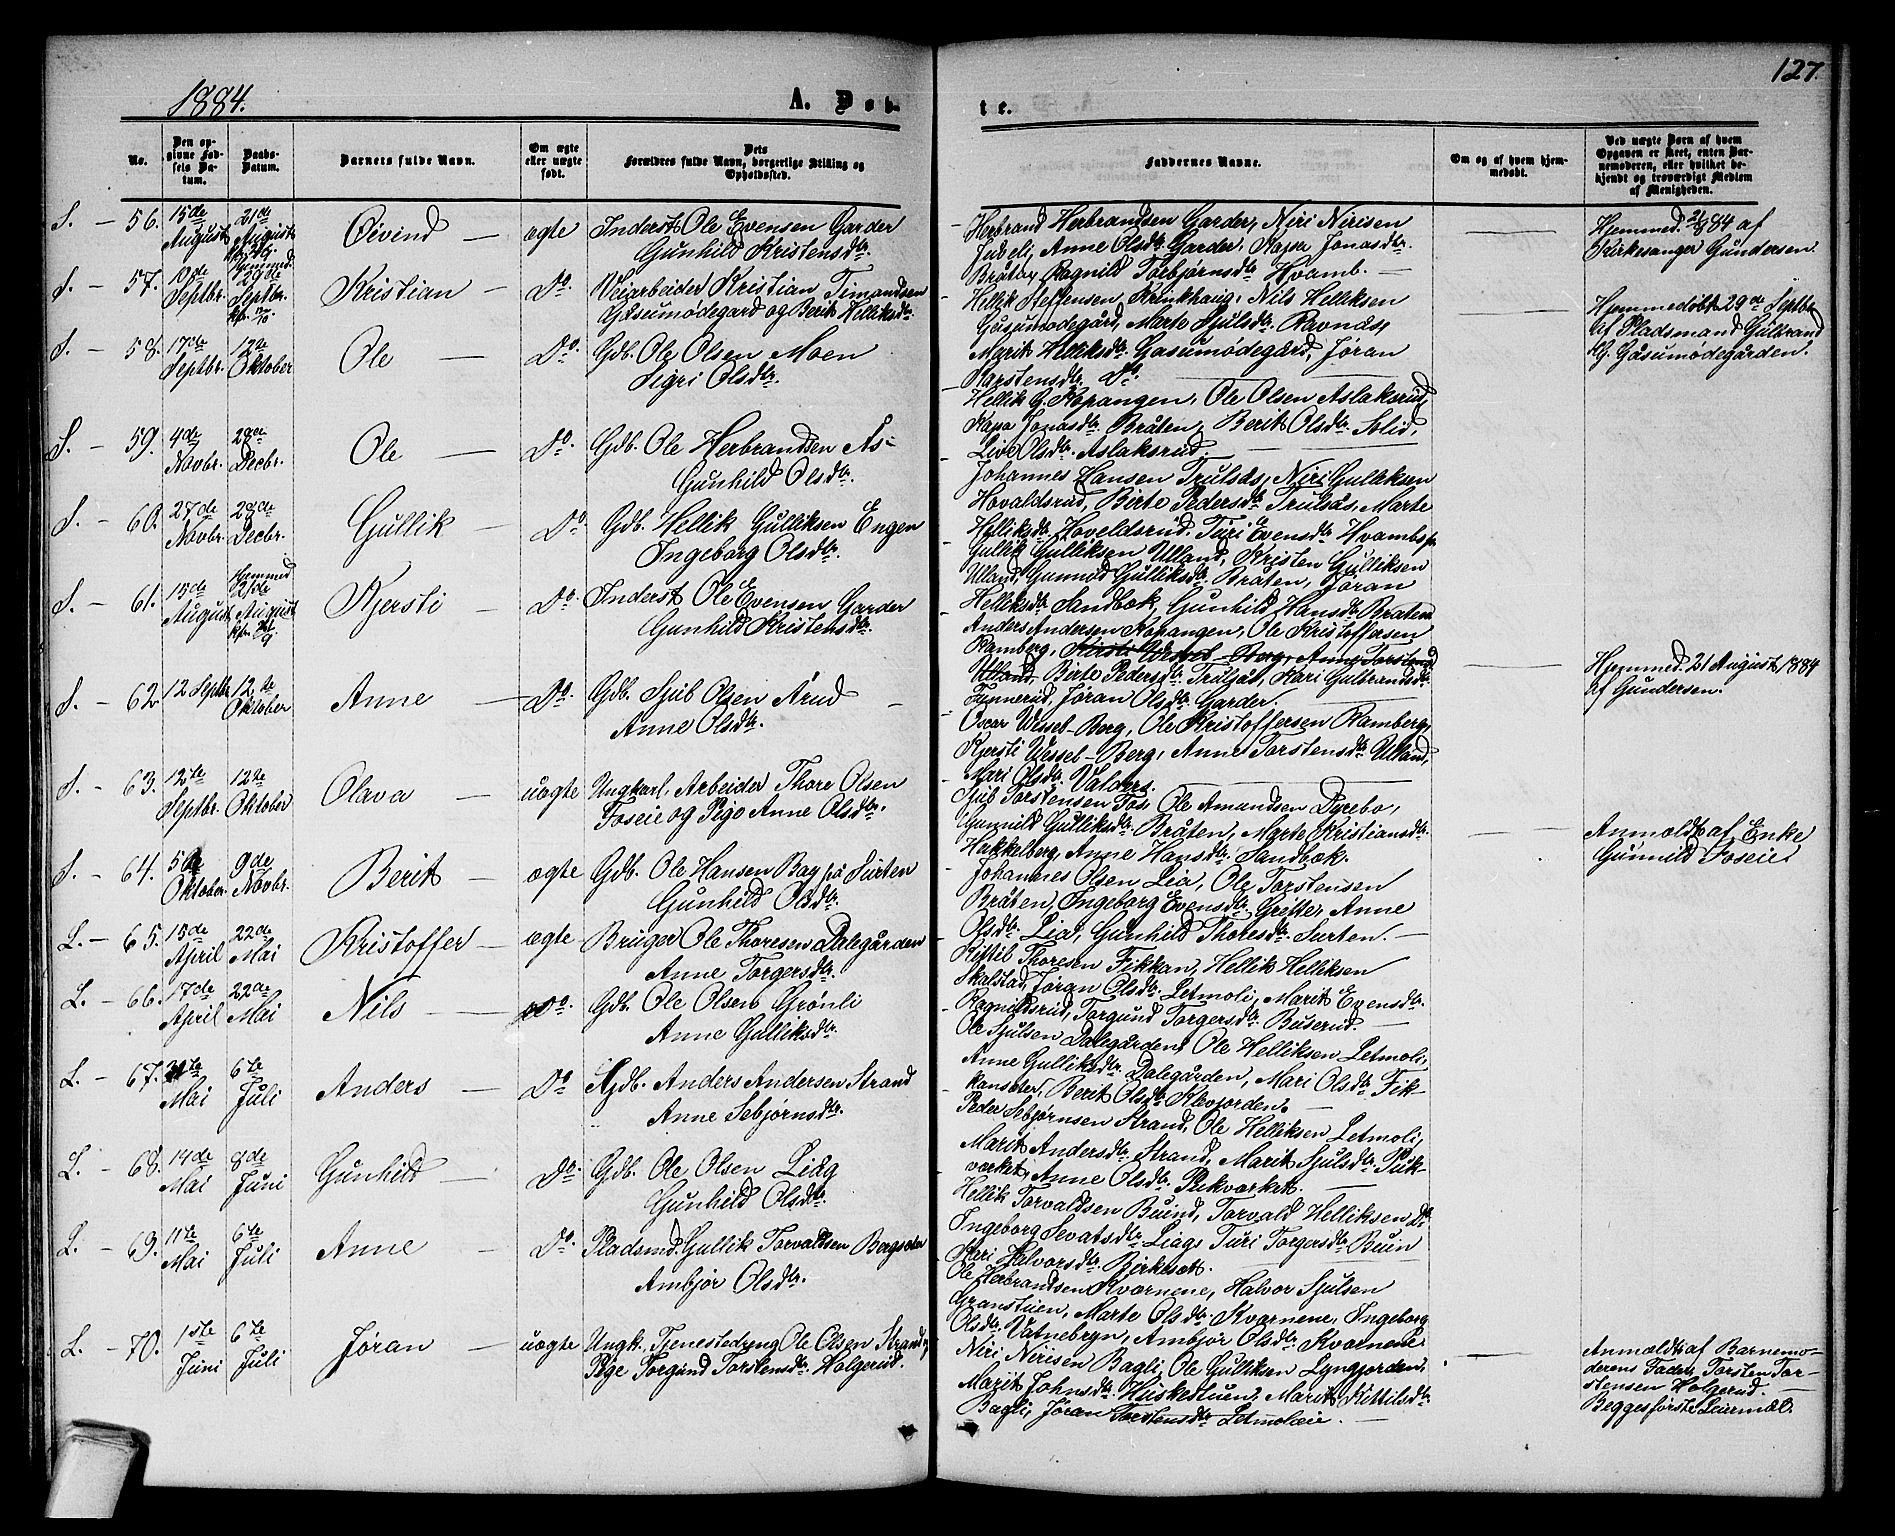 1884.
A. Døb-
te.
127.
No.
Den opgivne Fødsels Datum.
Daabs-Datum.
Barnets fulde Navn.
Om ægte eller uægte født.
Dets Forældres fulde Navn, borgerlige Stilling og Opholdssted.
Faddernes Navne.
Om og af hvem hjemmedøbt.
Ved uægte Børn af hvem Opgaven er skeet, enten Barnemoderen, eller hvilket bekjendt og troværdigt Medlem af Menigheden.
S. - 56. 15de August 21de August Øivind - ægte Inderst Ole Evensen Garder
Gunhild Kristensdtr.
Herbrand Herbrandsen Garder, Niri Nirisen
Jubeli, Anne Olsdtr. Garder, Kapa Jonasdtr.
Bråtan, Ragnild Torbjørnsdtr. Hvamb. -
Hjemmed. 21/8 84 af
Kirkesanger Gundersen.
S. - 57. 10de Septbr. Hjemmed. 29de Septbr. Kristian - Do. Veiarbeider Kristian Timandsen
Gåsumødegard og Berit Helliksdtr.
Hellik Steffensen Krinkhaug, Nils Helliksen
Gåsumødegård, Marte Sjulsdtr. Ravnås,
Marit Helliksdtr. Gasumødegård, Jøran
Karstensdtr. Do.
Hjemmedøbt 29de Septbr.
af Pladsmand Gulbrand
G. Gåsumødegården.
S. - 58. 17de Septbr. 12te Oktober Ole - Do. Gdb. Ole Olsen Moen
Sigri Olsdtr.
Hellik G. Kopangen, Ole Olsen Aslaksrud,
Kapa Jonasdtr. Bråten, Berit Olsdtr. Solid,
Live Olsdtr. Aslaksrud.
S. - 59. 4de Novbr. 28de Decbr. Ole - Do. Gdb. Ole Herbrandsen Ås -
Gunhild Olsdtr.
Johannes Hansen Trulsås, Niri Gulliksen
Hovaldsrud, Birte Pedersdtr. Trulsås, Marte
Helliksdtr. Hoveldsrud. Turi Evensdtr. Hvambsp.
S. - 60. 27de Novbr. 28de Decbr. Gullik - Do. Gdb. Hellik Gulliksen Engen
Ingeborg Olsdtr.
Gullik Gulliksen Ulland, Kristen Gulliksen
Ulland, Gunnod Gulliksdtr. Bråten, Jøran
Helliksdtr. Sandbæk, Gunhild Hansdtr. Bråten
S. - 61. 15de August Hjemmed 21de August Kjersti - Do. Inderst Ole Evensen Garder
Gunhild Kristensdtr.
Anders Andersen Kopangen, Ole Kristoffersen
Ramberg, Kirsti Wessel-Berg, Anne Torstensd
Ulland, Birte Pedersdtr. Trulsåt, Kari Gulbrandsdtr.
Tennerud, Jøran Olsdtr. Garder.
Hjemmed. 21 August 1884
af Gundersen.
S. - 62. 12 Septbr. 12te Oktober Anne - Do. Gdb. Sjul Olsen Årud -
Anne Olsdtr.
Oscar Wessel-Berg, Ole Kristoffersen Ramberg,
Kjersti Wessel-Berg, Anne Torstensdtr. Ulland,
Mari Olsdtr. Valders.
S. - 63. 12te Septbr. 12te Oktober Olava - uægte Ungkarl, Arbeider Thore Olsen
Foseie og Pige Anne Olsdtr.
Sjul Torstensen Fos, Ole Amundsen Dyrebo,
Gunnild Gulliksdtr. Bråten, Marte Kristiansdtr.
Hakkelberg, Anne Hansdtr. Sandbæk.
Anmeldt af Enke
Gunnild Foseie.
S. - 64. 5te Oktober. 9de Novbr. Berit - ægte Gdb. Ole Hansen Bag på Surten
Gunhild Olsdtr.
Johannes Olsen Lia, Ole Torstensen
Bråten, Ingeborg Evensdtr. Gritte, Anne
Olsdtr. Lia, Gunhild Thoresdtr. Surten. -
L. - 65. 15de April 22de Mai Kristoffer - ægte Bruger Ole Thoresen Dalegården
Anne Torgersdtr.
Kittil Thoresen Fikkan, Hellik Helliksen
Skalstad, Jøran Olsdtr. Letmoli, Marit Evensdtr.
Ragnildsrud, Torgund Torgersdtr. Buserud. -
L. - 66. 17de April 22de Mai Nils - Do. Gdb. Ole Olsen Grønli
Anne Gulliksdtr.
Ole Sjulsen Dalegården, Ole Helliksen Letmoli,
Anne Gulliksdtr. Dalegården, Mari Olsdtr. Fik-
kanseter, Berit Olsdtr. Klevjorden. -
L. - 67. Mai 6te Juli Anders - Do. Gdb. Anders Andersen Strand
Anne Sebjørnsdtr.
Peder Sebjørnsen Strand, Ole Helliksen Letmoli,
Marit Andersdtr. Strand, Marit Sjulsdtr. Puk-
værket, Anne Olsdtr. Pukværket.
L. - 68. 14de Mai 8de Juni Gunhild - Do. Gdb. Ole Olsen Liag
Gunhild Olsdtr.
Hellik Torvaldsen Buind, Torvald Helliksen Do.
Ingeborg Sevatsdtr. Liag, Turi Torgersdtr. Buin
Mari Halvorsdtr. Birkesæt.
L. - 69. 11te Mai 6te Juli Anne - Do. Pladsmd. Gullik Torvaldsen Bergseter
Ambjør Olsdtr.
Ole Herbrandsen Kværnene, Halvor Sjulsen
Granstuen, Marte Olsdtr. Kværnene, Ingeborg
Olsdtr. Vatnebryn, Ambjør Olsdtr. Kværnene.
L. - 70. 1ste Juni 6te Juli Jøran - uægte Ungk. Tjenestedreng Ole Olsen Strand,
Pige Torgund Torstensdtr. Holgerud.
Niri Nirisen Bagli, Ole Gulliksen Lyngjorden,
Marit Johnsdtr. Huskestuen, Marit Kittilsdtr.
Bagli, Jøran Torstensdtr. Letmolieie. -
Anmeldt af Barnemo-
derens Fader, Torsten Tor-
stensen Holgerud. -
Begges første Leiermål.